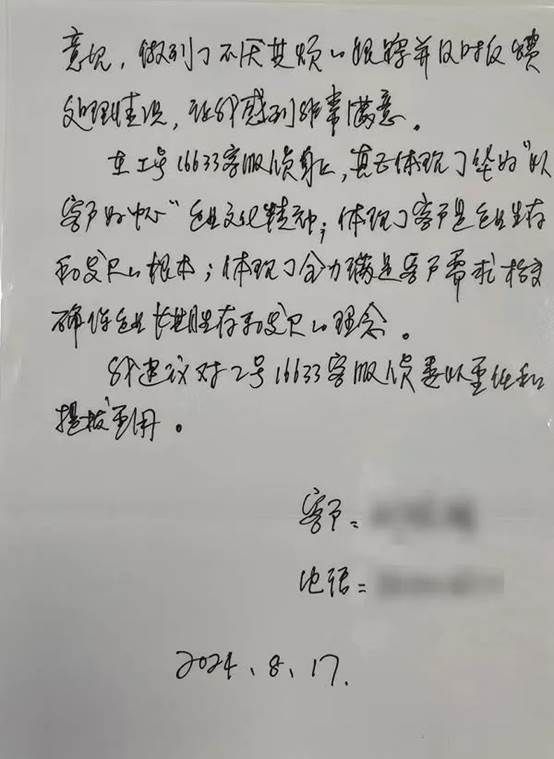 意见，做到了不厌其烦的跟踪并及时反馈
处理情况，让我感到非常满意。
在工号16633客服员身上，真正体现了华为"以
客户为中心"企业文化精神；体现了客户是企业生存
和发展的根本；体现了全力满足客户需求
确保企业长期生存和发展的理念。
我建议对工号16633客服员委以重任和
提拔重用。
客户：
电话：
2024、8、17.